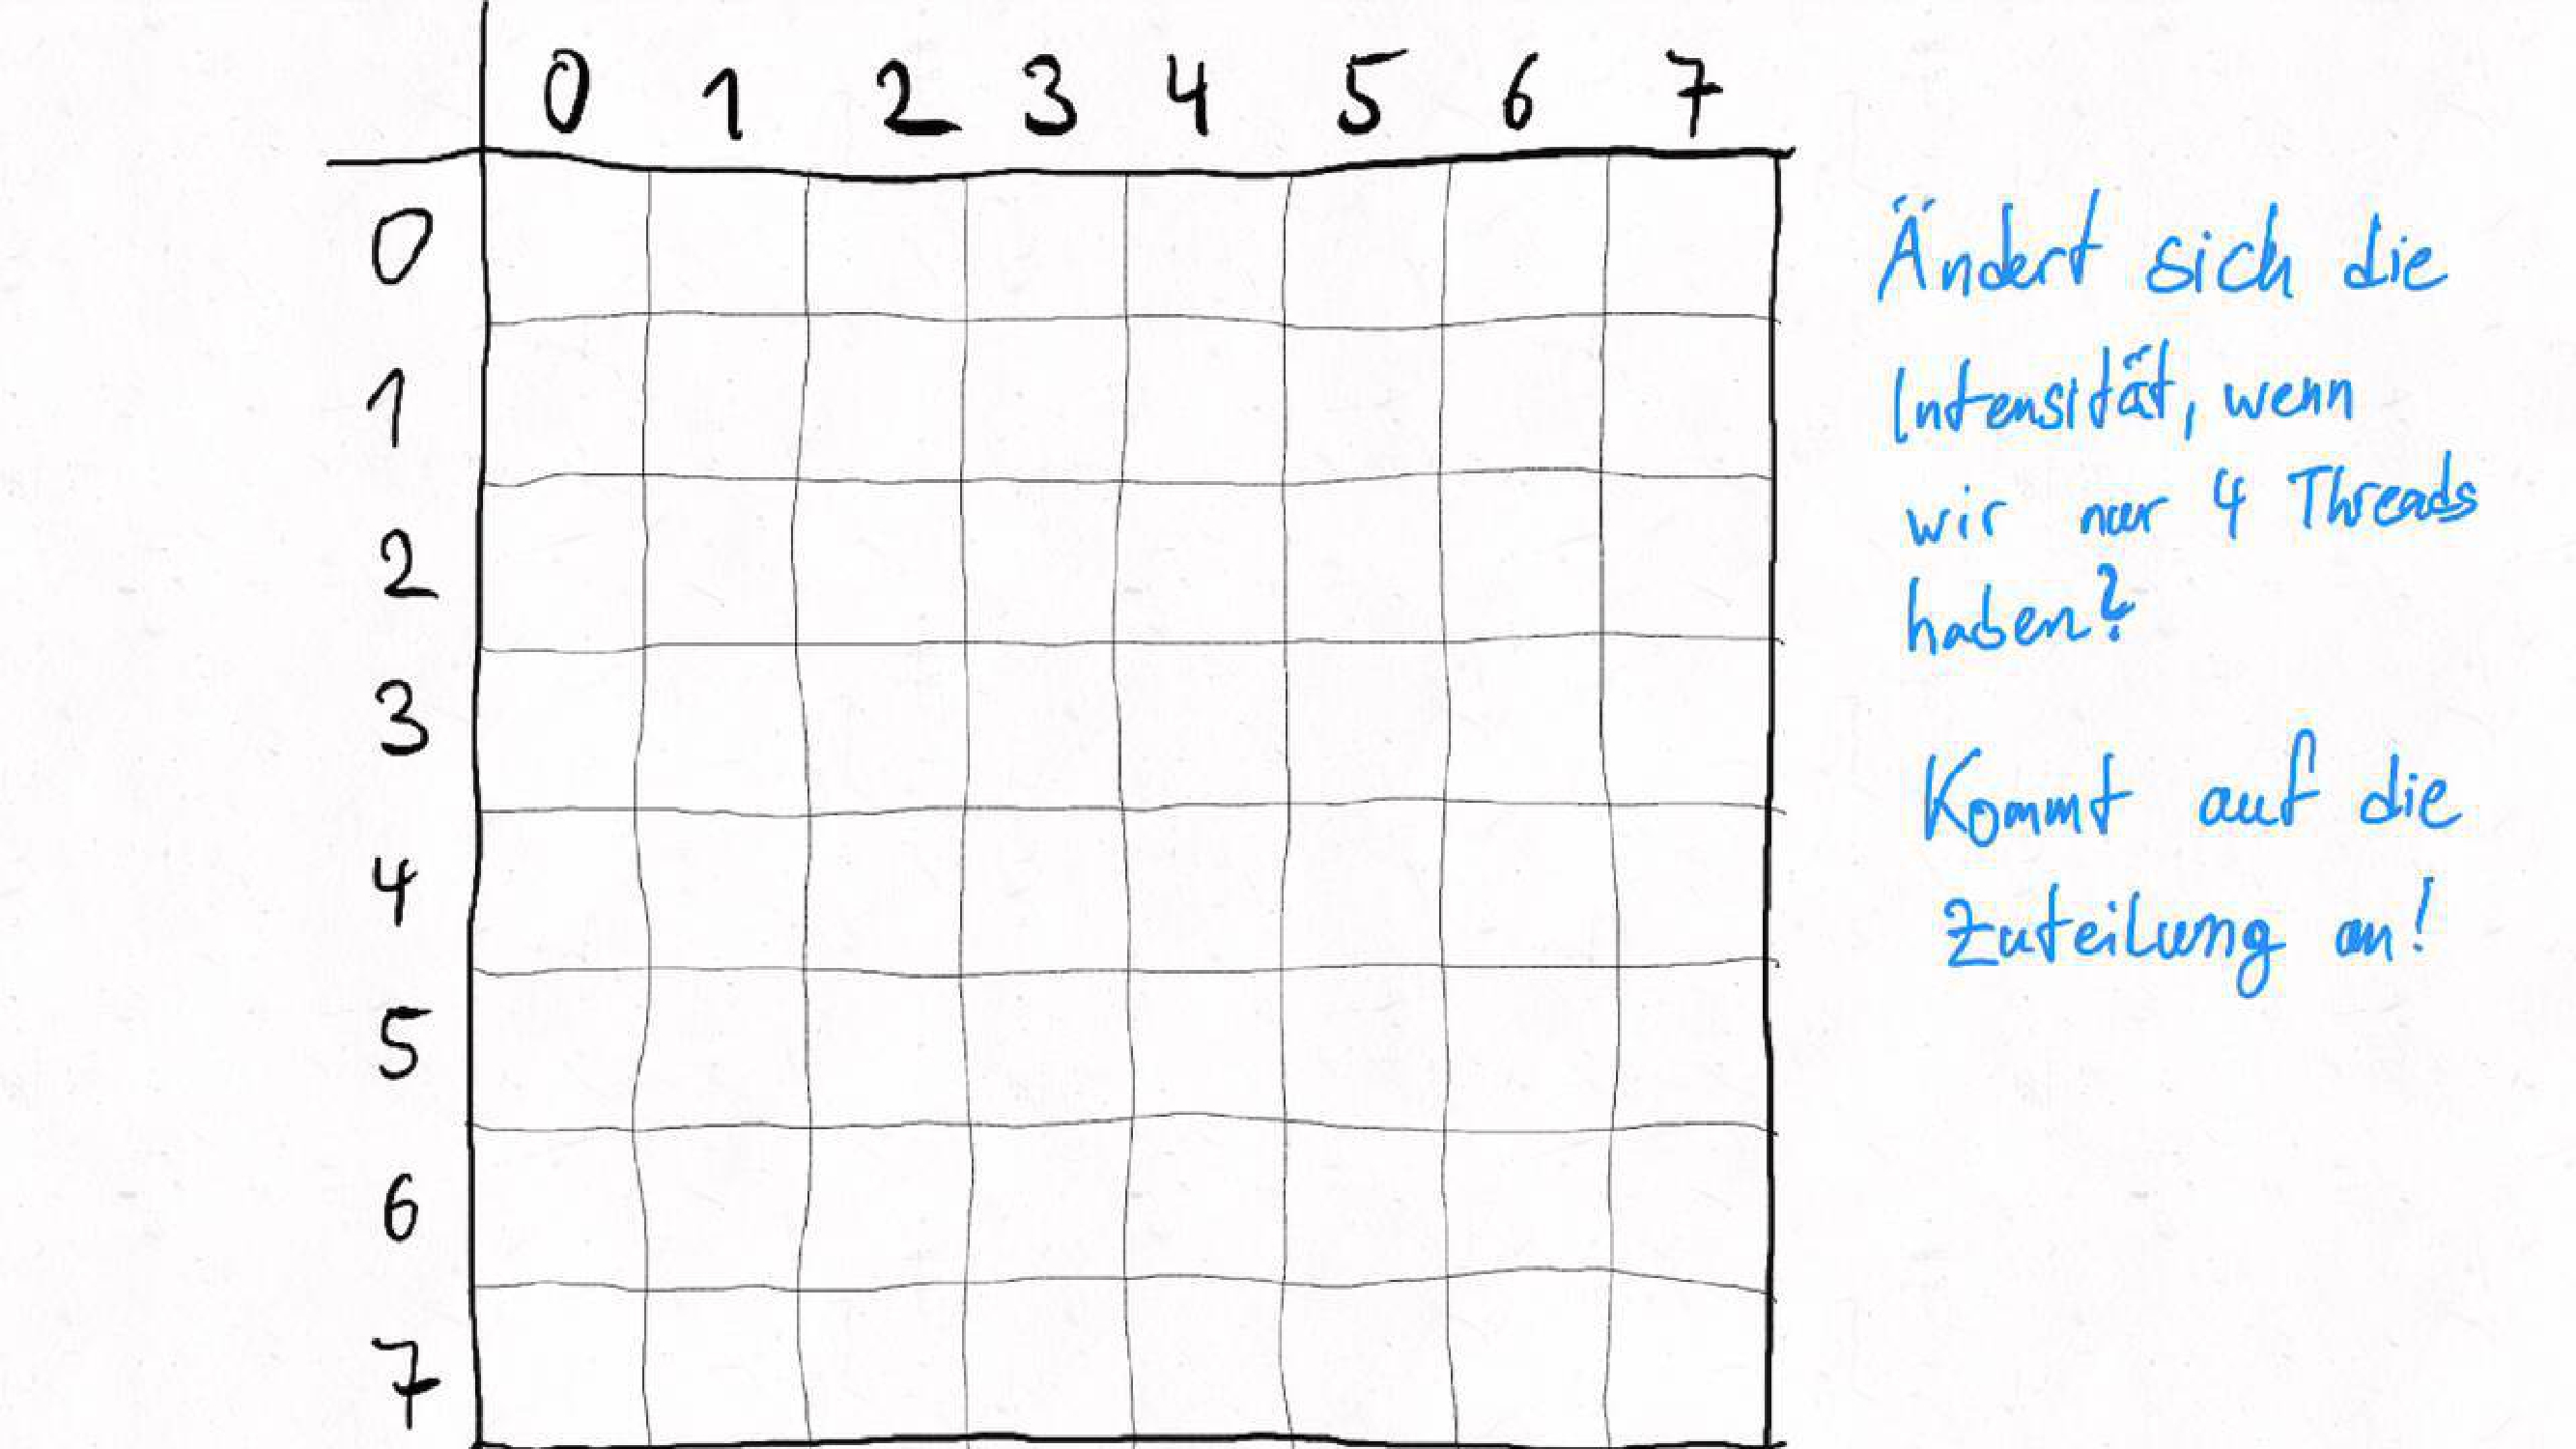 0 1 2 3 4 5 6 7
0
1
2
3
4
5
6
7
Ändert sich die
Intensität, wenn
wir nur 4 Threads
haben?
Kommt auf die
Zuteilung an!